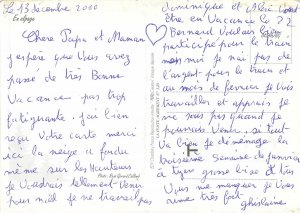 Le 13 décembre 2000
En alpage
Chère Papa et Maman
j'espère que Vous avez
passé de très Bonne
Vacance pas trop
fatiguante, j'ai bien
reçu Votre carte merci
ici la neige a fondu
même sur les Hauteurs
je Voudrais tellement Venir
pour noël je ne travail pas
Dominique et Aleic
être en Vacance le 22
Bernard Voulait
participé pour le train
mes moi je nai pas de
l'argent pour le train et
au mois de février je Vais
travailler et après je
ne sais pas quand je
pourrais Venir, si tout
Va bien je déménage la
troisième semaine de janvier
à tiger grosse bise et très
Vous me manquez je Vous
aime très fort
ghislaine